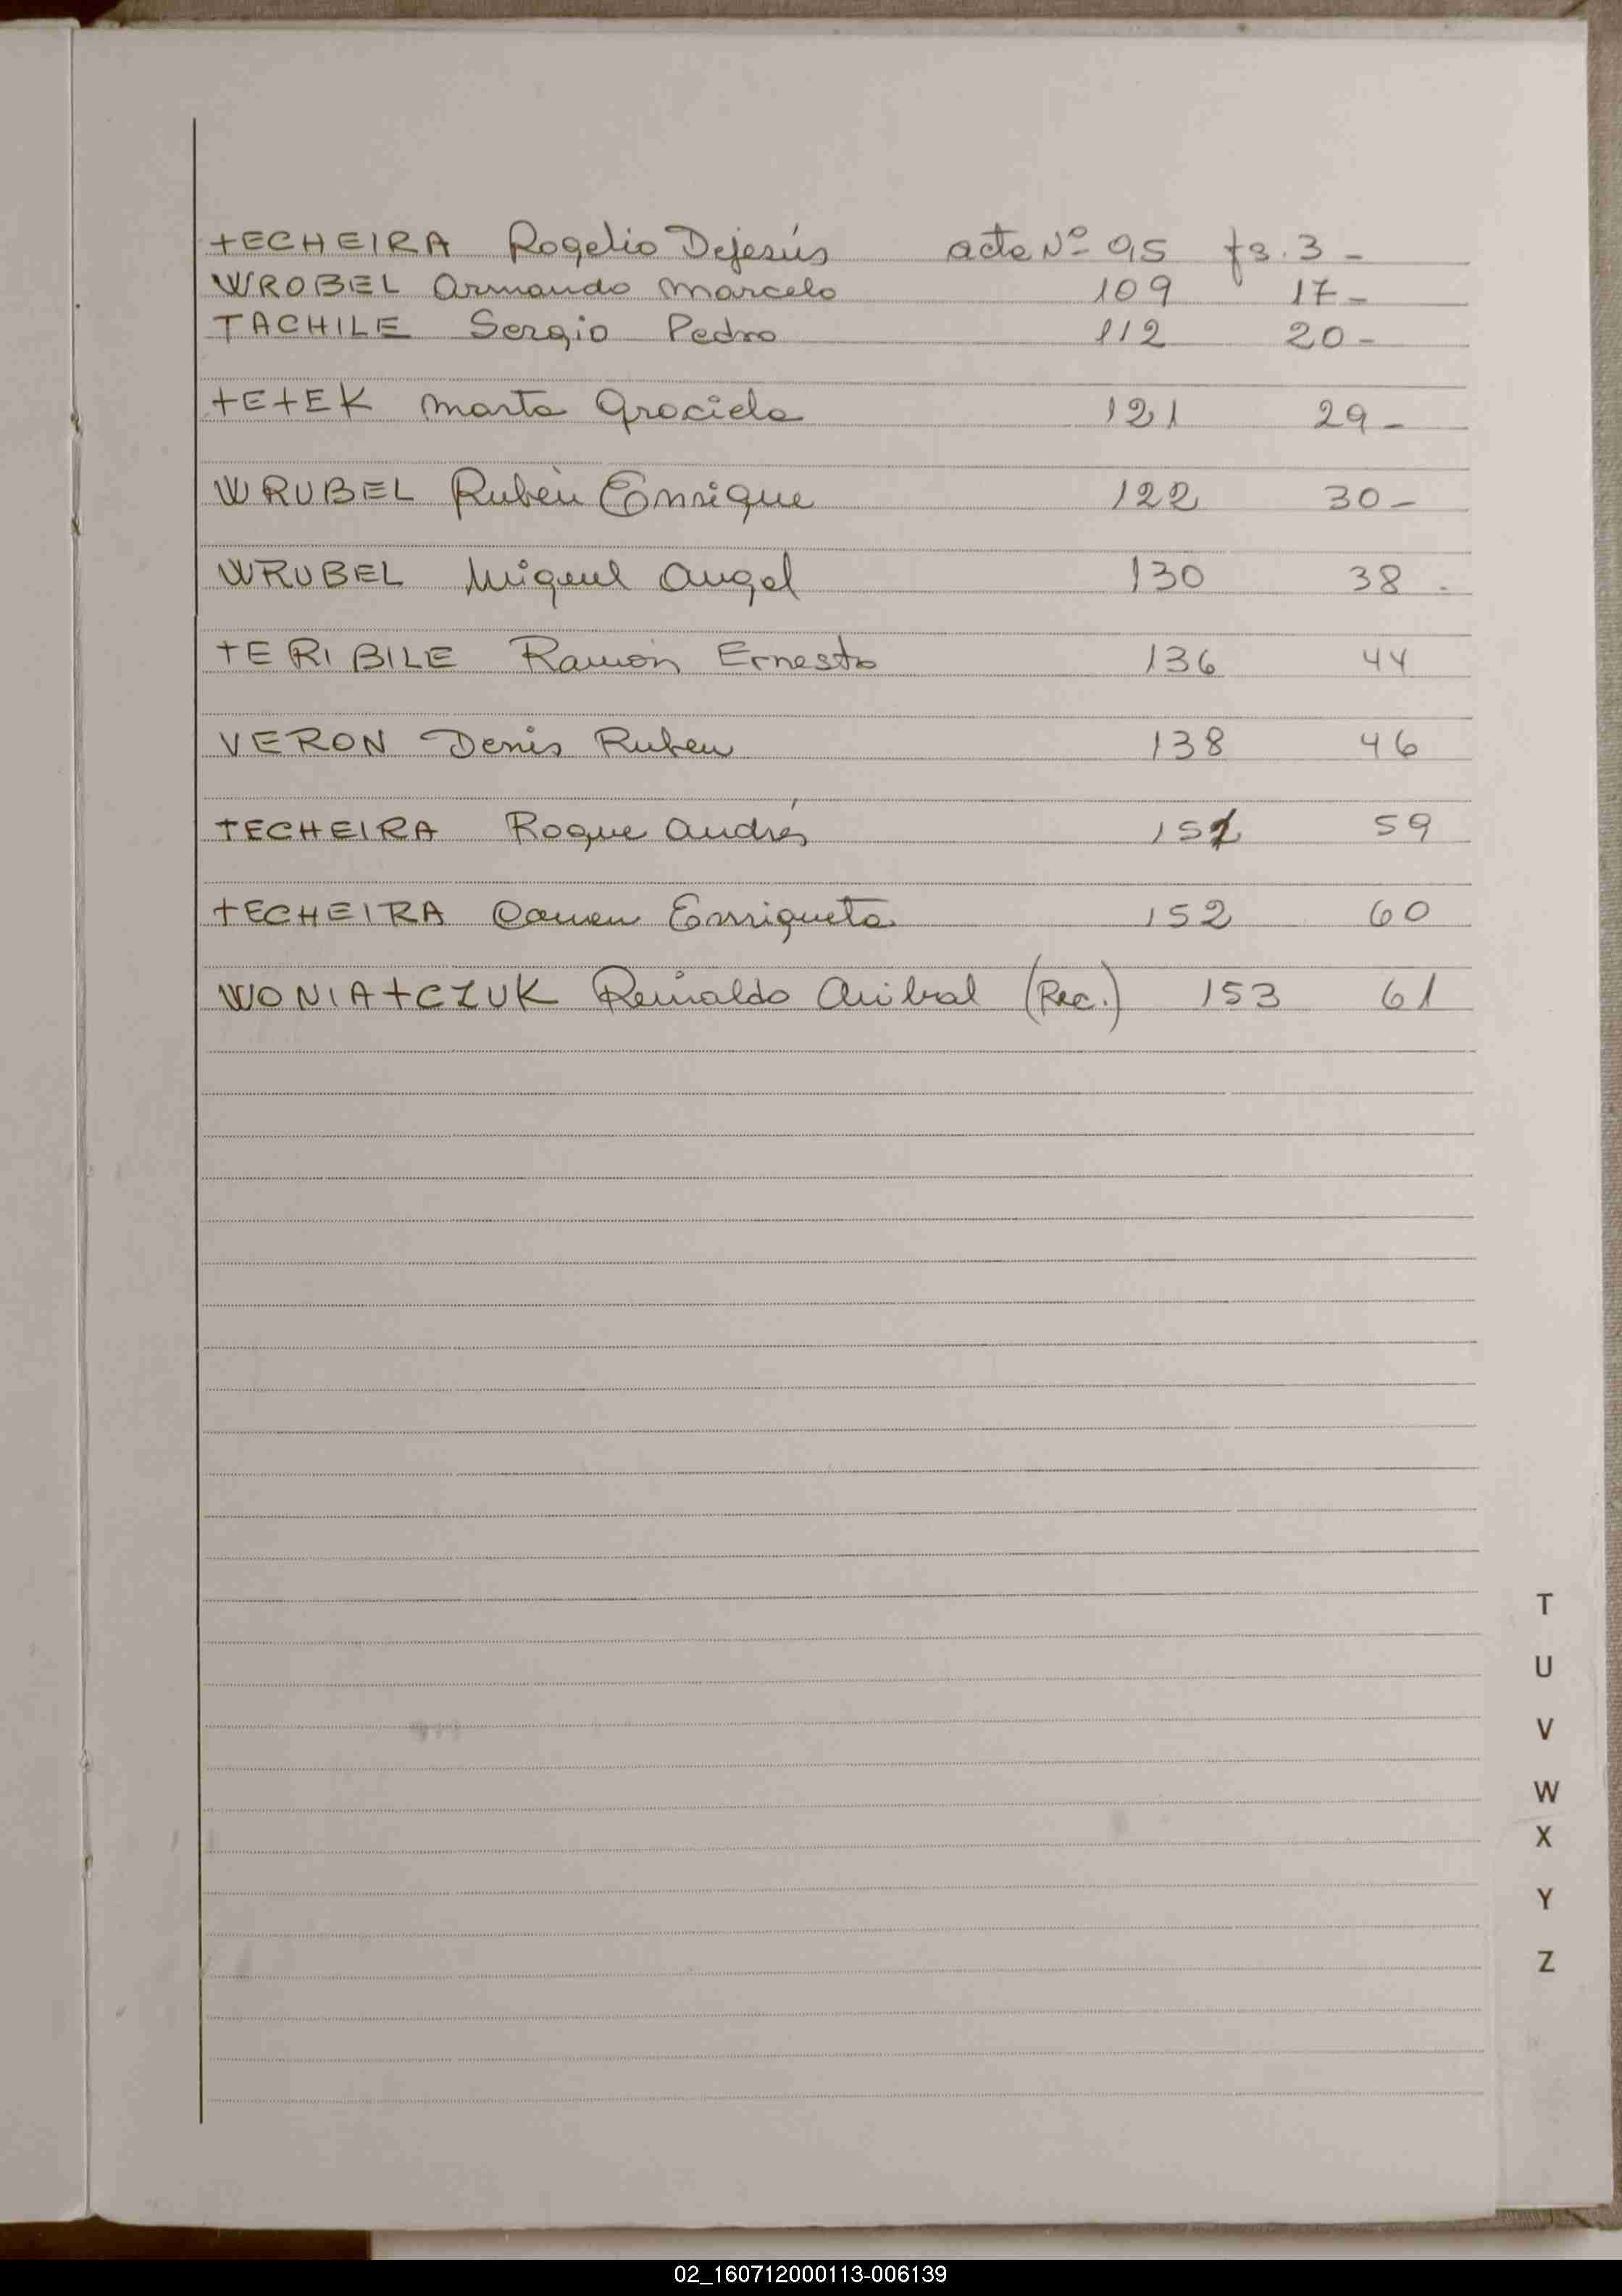 TECHEIRA Rogelio Dejesús acta Nº 95 fs. 3 -
WROBEL Armando Marcelo 109 17 -
TACHILE Sergio Pedro 112 20 -
TETEK Marta Graciela 121 29 -
WRUBEL Rubén Enrique 122 30 -
WRUBEL Miguel Angel 130 38 -
TERIBILE Ramón Ernesto 136 44
VERON Denis Ruben 138 46
TECHEIRA Roque Andrés 151 59
TECHEIRA Carmen Enriqueta 152 60
WONIATCZUK Reinaldo Anibal (Rec.) 153 61
T
U
V
W
X
Y
Z
02_160712000113-006139